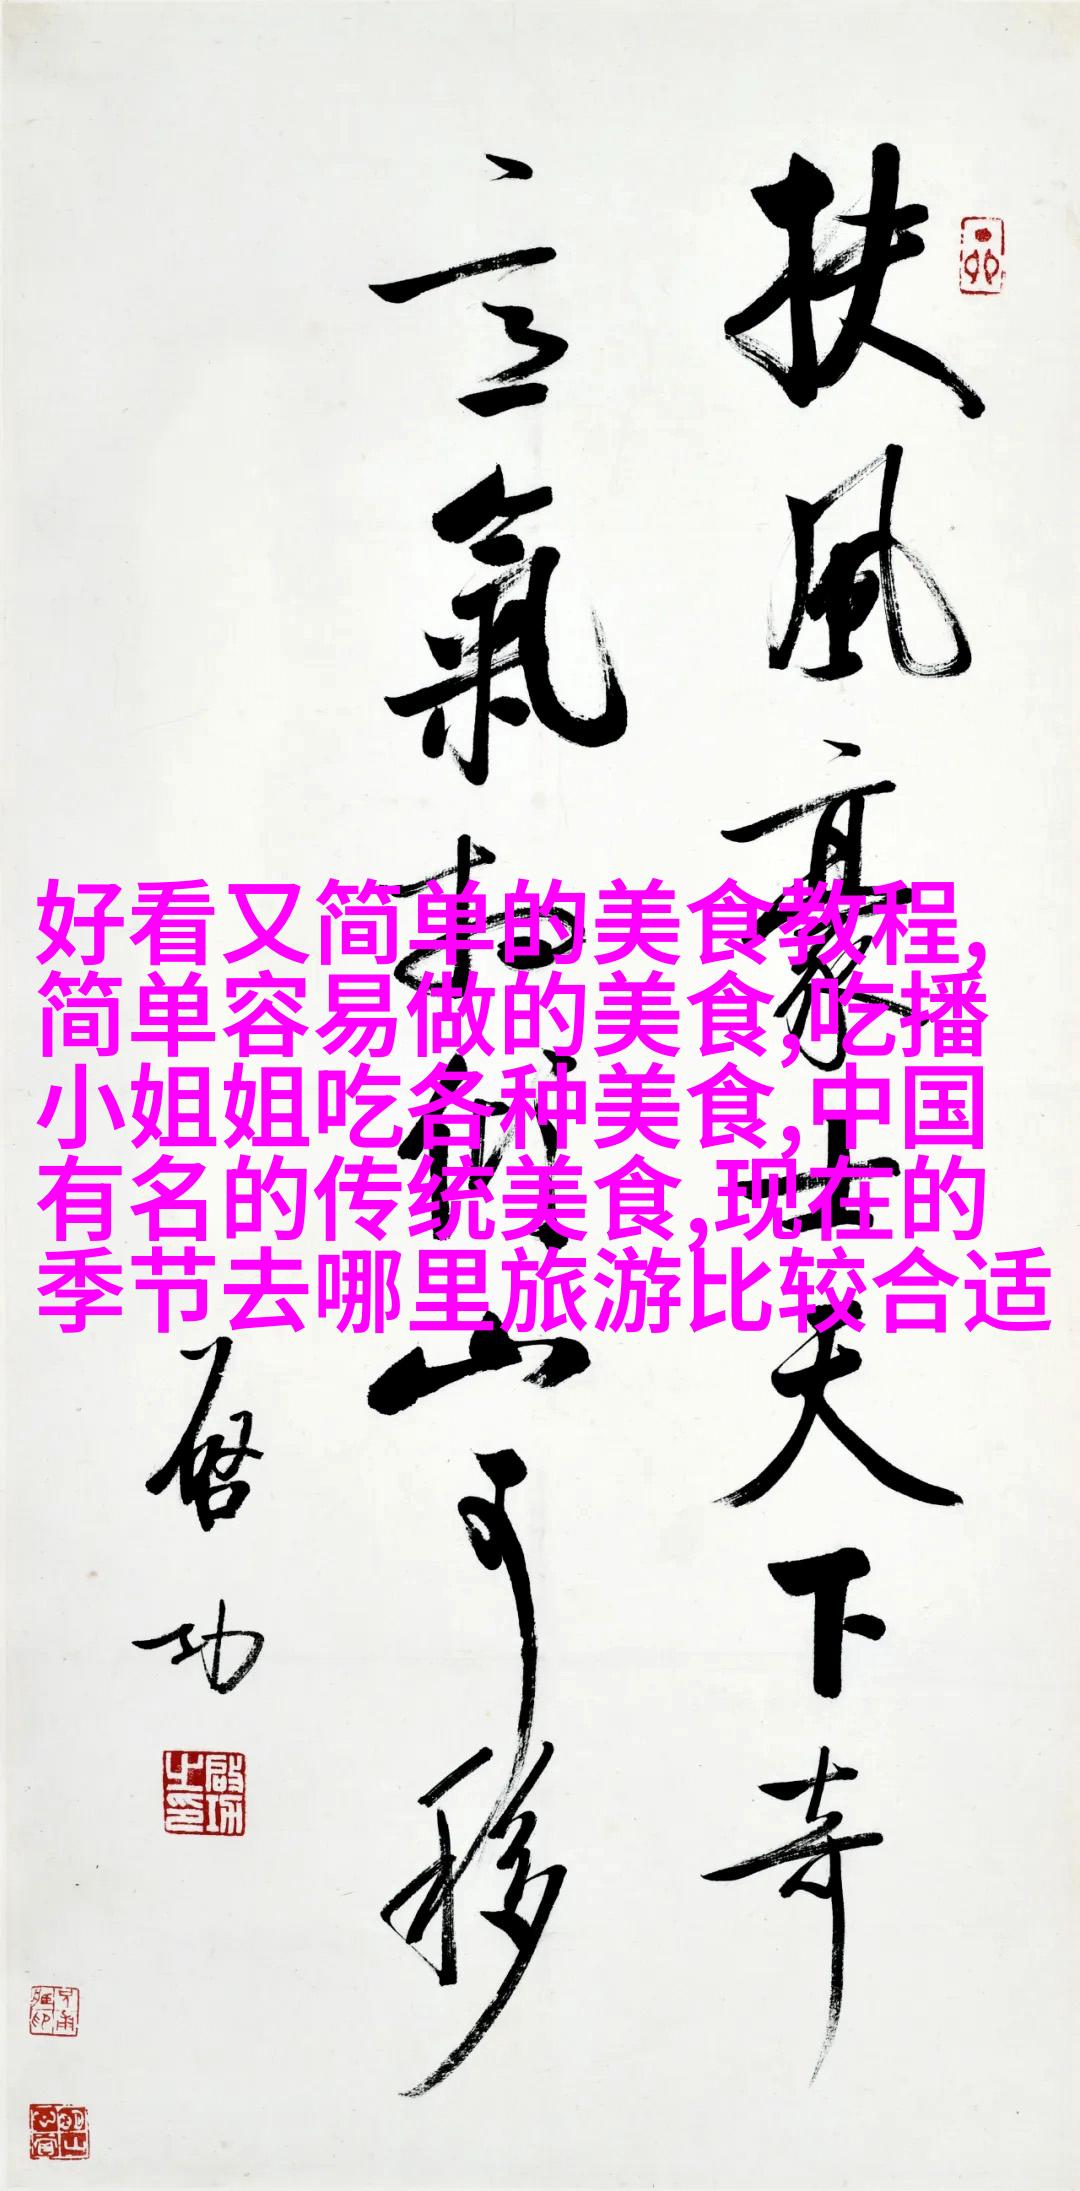 扶風豪士天下奇
意氣相傾山可移
启功
啟功之印
好看又简单的美食教程,
简单容易做的美食,吃播
小姐姐吃各种美食,中国
有名的传统美食,现在的
季节去哪里旅游比较合适